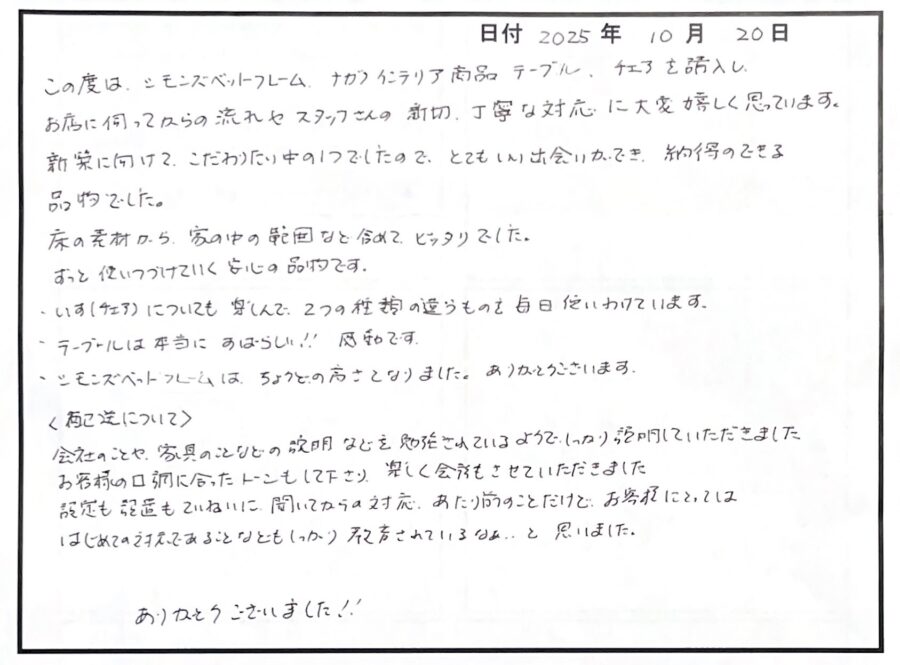 日付 2025 年 10 月 20 日
この度は、シモンズベットフレーム、ナガノインテリア商品 テーブル、チェアを購入し、
お店に伺ってからの流れやスタッフさんの親切、丁寧な対応に大変嬉しく思っています。
新築に向けて、こだわりたい中の1つでしたので、とてもいい出会いができ、納得のできる
品物でした。
床の素材から、家の中の範囲など含めて、ピッタリでした。
ずっと使いつづけていく安心の品物です。
・いす(チェア)についても楽しんで、2つの種類の違うものを毎日使いわけています。
・テーブルは本当にすばらしい!! 感動です。
・シモンズベットフレームは、ちょうどの高さとなりました。ありがとうございます。
〈配送について〉
会社のことや、家具のことなどの説明などを勉強されているようで、しっかり説明していただきました
お客様の口調に合ったトーンもして下さり、楽しく会話もさせていただきました
設定も設置もていねいに、聞いてからの対応、あたり前のことだけど、お客様にとっては
はじめての対応であることなどもしっかり教育されているなぁ..と思いました。
ありがとうございました!!